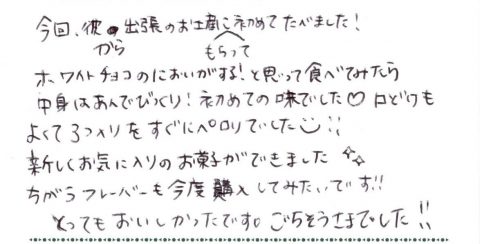 今回、彼から出張のお土産にもらって初めてたべました!
ホワイトチョコのにおいがする!と思って食べてみたら
中身はあんでびっくり!初めての味でした♡口どけも
よくて3つ入りをすぐにペロリでした!!
新しくお気に入りのお菓子ができました
ちがうフレーバーも今度購入してみたいです!!
とってもおいしかったです。ごちそうさまでした!!